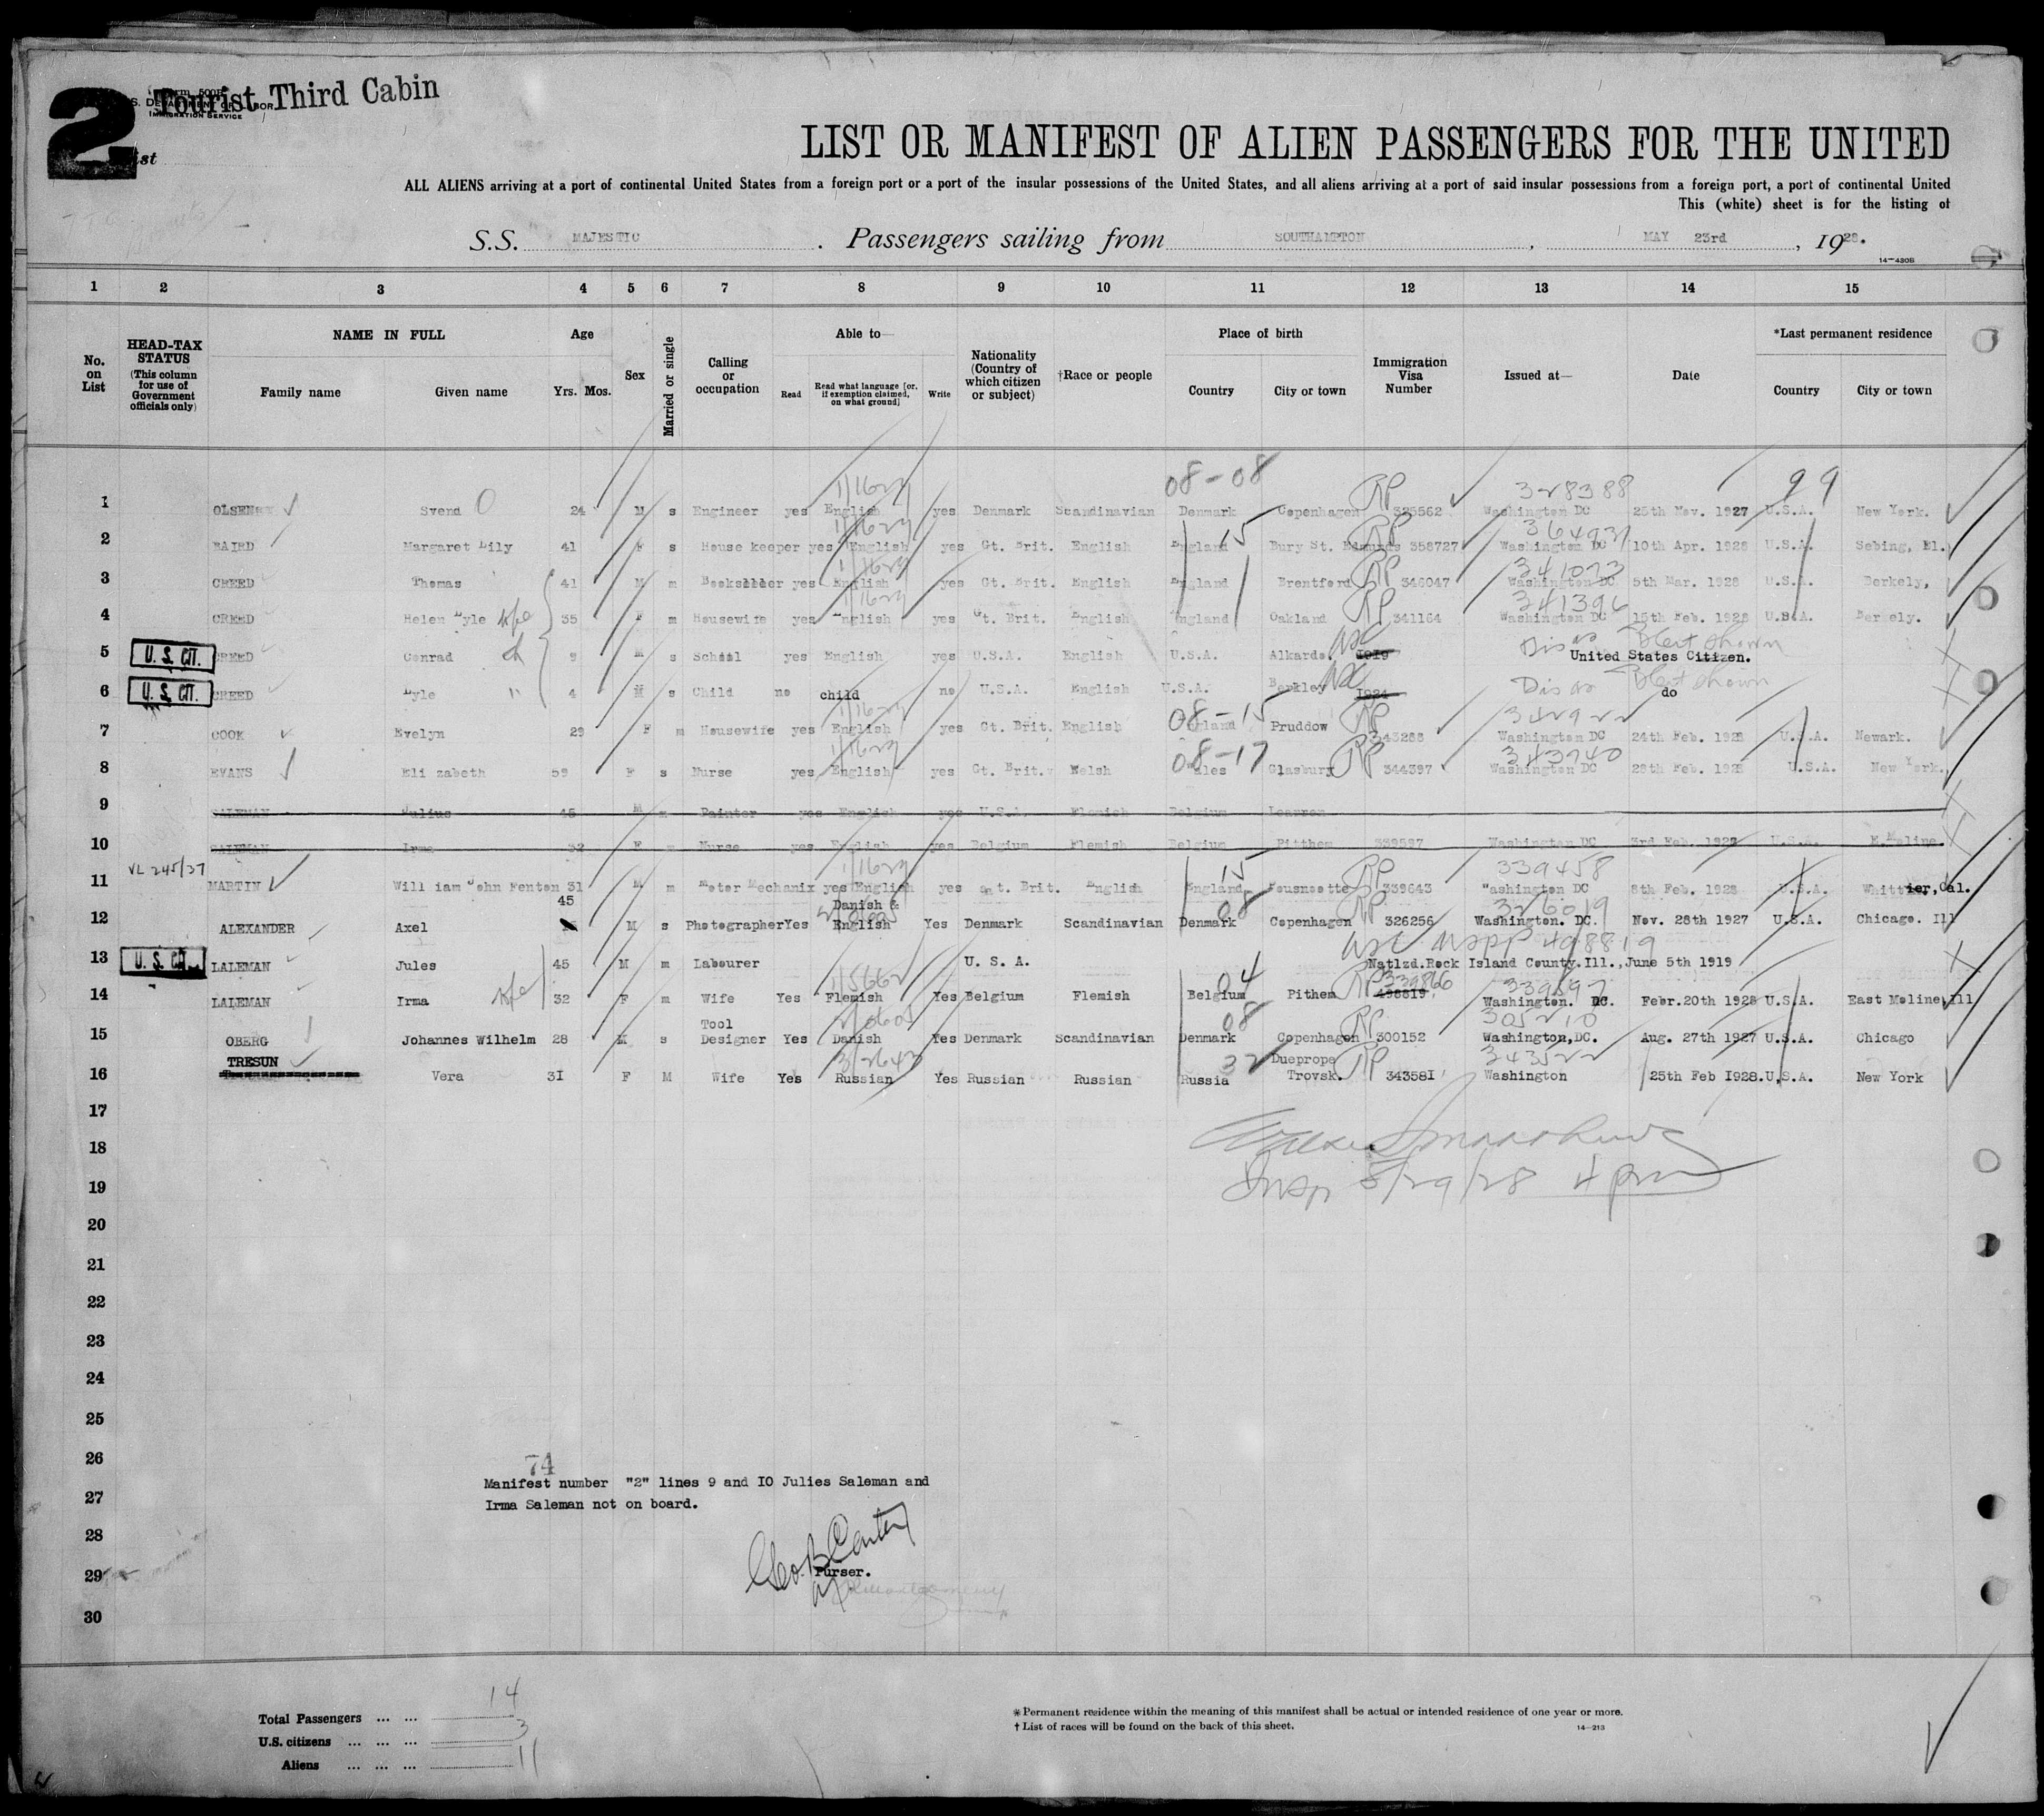 2
Form 500B
Tourist Third Cabin
U.S. DEPARTMENT OF LABOR
IMMIGRATION SERVICE
List
LIST OR MANIFEST OF ALIEN PASSENGERS FOR THE UNITED
ALL ALIENS arriving at a port of continental United States from a foreign port or a port of the insular possessions of the United States, and all aliens arriving at a port of said insular possessions from a foreign port, a port of continental United
This (white) sheet is for the listing of
S.S. MAJESTIC . Passengers sailing from SOUTHAMPTON , MAY 23rd , 1928.
14-480B
1 2 3 4 5 6 7 8 9 10 11 12 13 14 15
No. on List HEAD-TAX STATUS (This column for use of Government officials only) NAME IN FULL Family name Given name Age Yrs. Mos. Sex Married or single Calling or occupation Able to— Read Read what language [or, if exemption claimed, on what ground] Write Nationality (Country of which citizen or subject) †Race or people Place of birth Country City or town Immigration Visa Number Issued at— Date *Last permanent residence Country City or town
08-08 99
1/1623 RP 328388
1 OLSEN Svend 24 M s Engineer yes English yes Denmark Scandinavian Denmark Copenhagen 325562 Washington DC 25th Nov. 1927 U.S.A. New York.
1/1623 15 RP
2 BAIRD Margaret Lily 41 F s House keeper yes English yes Gt. Brit. English England Bury St. Edmunds 358727 Washington DC 10th Apr. 1928 U.S.A. Sebing,
1/1623 RP 341073
3 CREED Thomas 41 M m Bookseller yes English yes Gt. Brit. English England Brentford 346047 Washington DC 5th Mar. 1928 U.S.A. Berkely,
1/1623 RP 341396
4 CREED Helen Lyle wfe 35 F m Housewife yes English yes Gt. Brit. English England Oakland 341164 Washington DC 15th Feb. 1928 U.S.A. Berkely.
5 U. S. CIT. CREED Conrad ch 9 M s School yes English yes U.S.A. English U.S.A. Alkardo. 1919 United States Citizen.
6 U. S. CIT. CREED Lyle " 4 M s Child no child no U.S.A. English U.S.A. Berkley 1924 do
1/1623 08-15 RP 342922
7 COOK Evelyn 29 F m Housewife yes English yes Gt. Brit. English England Pruddow 343288 Washington DC 24th Feb. 1928 U.S.A. Newark.
1/1623 08-17 RP 343740
8 EVANS Eli zabeth 59 F s Nurse yes English yes Gt. Brit. Welsh Wales Glasbury 344397 Washington DC 28th Feb. 1928 U.S.A. New York.
9 SALEMAN Julius 45 M m Painter yes English yes U.S.A. Flemish Belgium
10 SALEMAN Irma 32 F m Nurse yes English yes Belgium Flemish Belgium Pitthem 339597 Washington DC 3rd Feb. 1927 U.S.A. E.Moline.
VL 245/37 1/1623 15 RP 339458
11 MARTIN Will iam John Fenton 31 M m Motor Mechanix yes English yes Gt. Brit. English England 339643 Washington DC 8th Feb. 1928 U.S.A. Whittier,Cal.
45 Danish & 08 RP 326019
12 ALEXANDER Axel M s Photographer Yes English Yes Denmark Scandinavian Denmark Copenhagen 326256 Washington. DC. Nov. 28th 1927 U.S.A. Chicago. Ill
498819
13 U. S. CIT. LALEMAN Jules 45 M m Labourer U. S. A. Natlzd.Rock Island County.Ill.,June 5th 1919
1/5662 04 RP 339866 339597
14 LALEMAN Irma wfe 32 F m Wife Yes Flemish Yes Belgium Flemish Belgium Pithem 498819 Washington. DC. Febr.20th 1928 U.S.A. East Moline,Ill
Tool 08 RP 305210
15 OBERG Johannes Wilhelm 28 M s Designer Yes Danish Yes Denmark Scandinavian Denmark Copenhagen 300152 Washington,DC. Aug. 27th 1927 U.S.A. Chicago
TRESUN 3/2642 32 Dueprope RP 343522
16 Vera 31 F M Wife Yes Russian Yes Russian Russian Russia Trovsk. 343581 Washington 25th Feb 1928. U.S.A. New York
17
18
Insp 5/29/28 4 pm
19
20
21
22
23
24
25
26
74
Manifest number "2" lines 9 and IO Julies Saleman and
27
Irma Saleman not on board.
28
Geo. B Carter
29 Purser.
30
Total Passengers ... ... 14
U.S. citizens ... ... ... 3
Aliens ... ... ... 11
* Permanent residence within the meaning of this manifest shall be actual or intended residence of one year or more.
† List of races will be found on the back of this sheet.
14-213